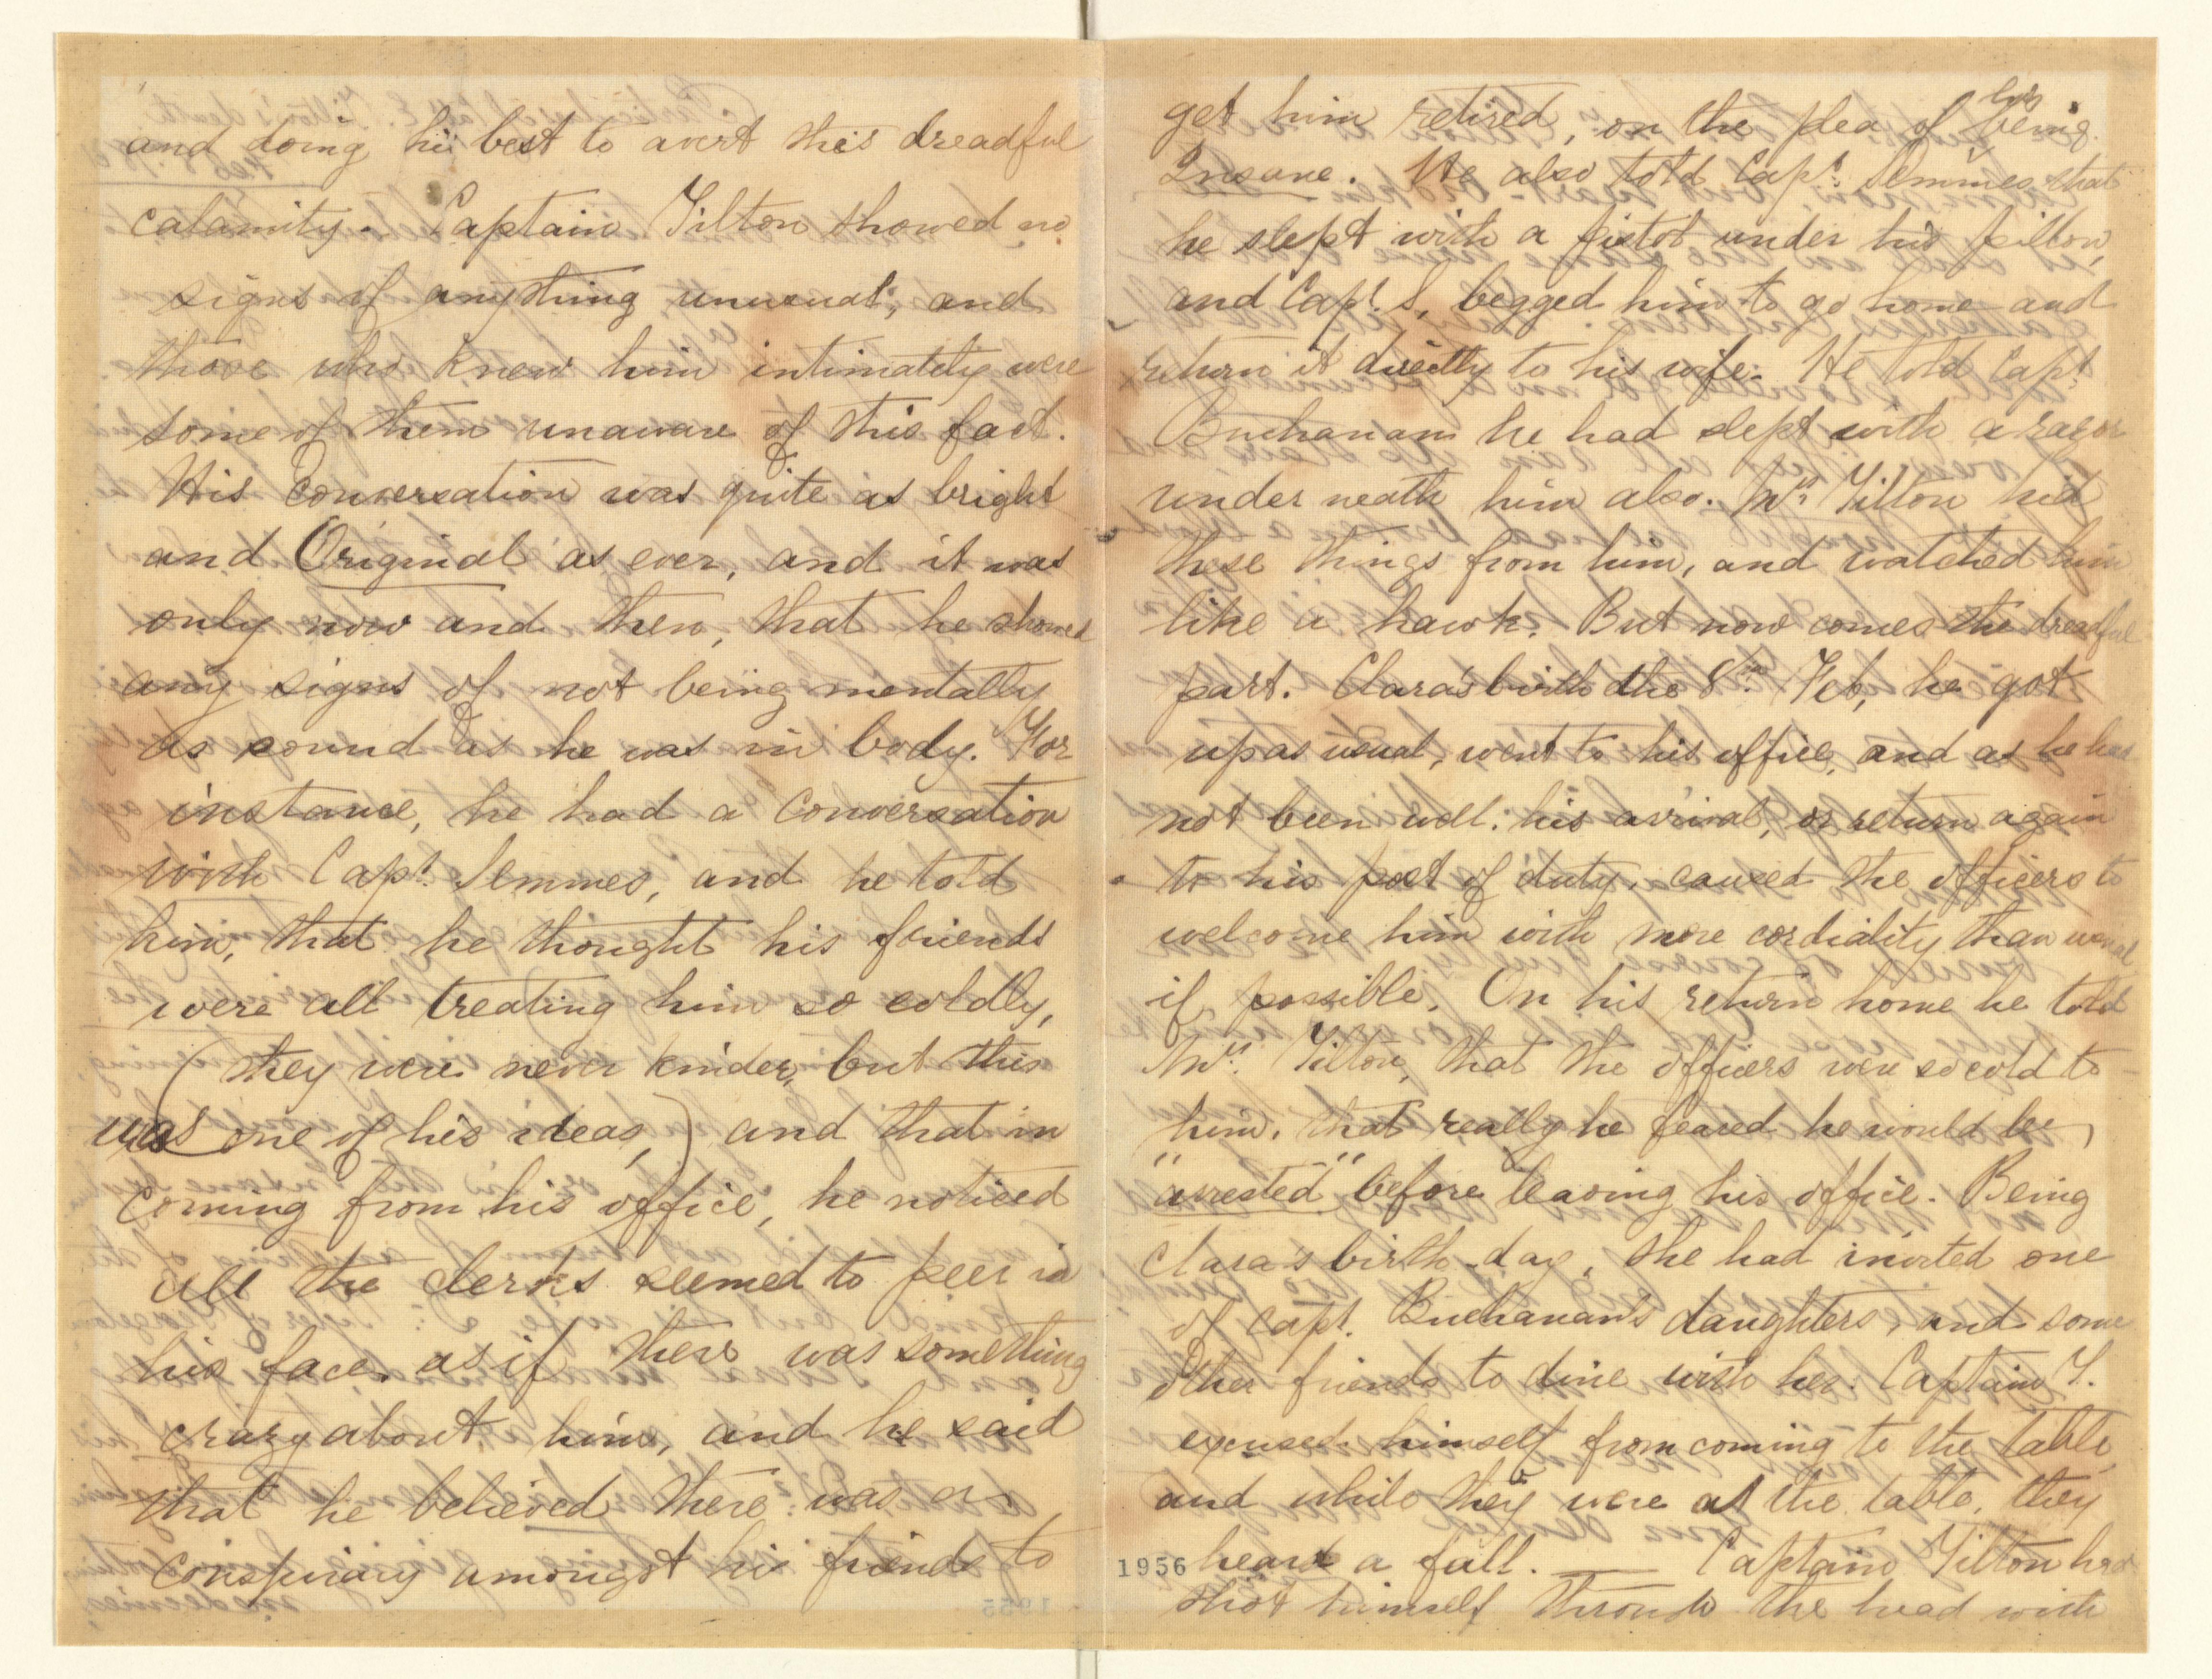 and doing his best to avert this dreadful
calamity. Captain Tilton showed no
signs of anything unusual, and
those who knew him intimately were
some of them unaware of this fact.
His Conversation was quite as bright
and Original as ever, and it was
only now and then, that he showed
any signs of not being mentally
as sound as he was in body. For
instance, he had a Conversation
with Capt. Semmes, and he told
him, that he thought his friends
were all treating him so coldly,
(they were never kinder, but this
was one of his ideas,) and that in
coming from his office, he noticed
all the clerks seemed to peer in
his face, as if there was something
crazy about him, and he said
that he believed there was a
conspiracy amongst his friends to
get him retired, on the plea of his being
Insane. He also told Capt. Semmes that
he slept with a pistol under his pillow,
and Capt. S. begged him to go home and
return it directly to his wife. He told Capt.
Buchanan he had slept with a razor
under neath him also. Mrs Tilton hid
these things from him, and watched him
like a hawk. But now comes the dreadful
part. Clara's birth the 8th Feb, he got
up as usual, went to his office, and as he had
not been well, his arrival, or return again
to his post of duty, caused the officers to
welcome him with more cordiality than usual
if possible. On his return home he told
Mrs. Tilton, that the officers were so cold to
him, that really he feared he would be,
"arrested" before leaving his office. Being
Clara's birth-day, she had invited one
of Capt. Buchanan's daughters, and some
other friends to dine with her. Captain T.
excused himself from coming to the table,
and while they were at the table, they
heard a fall. — Captain Tilton had
shot himself through the head with
1956